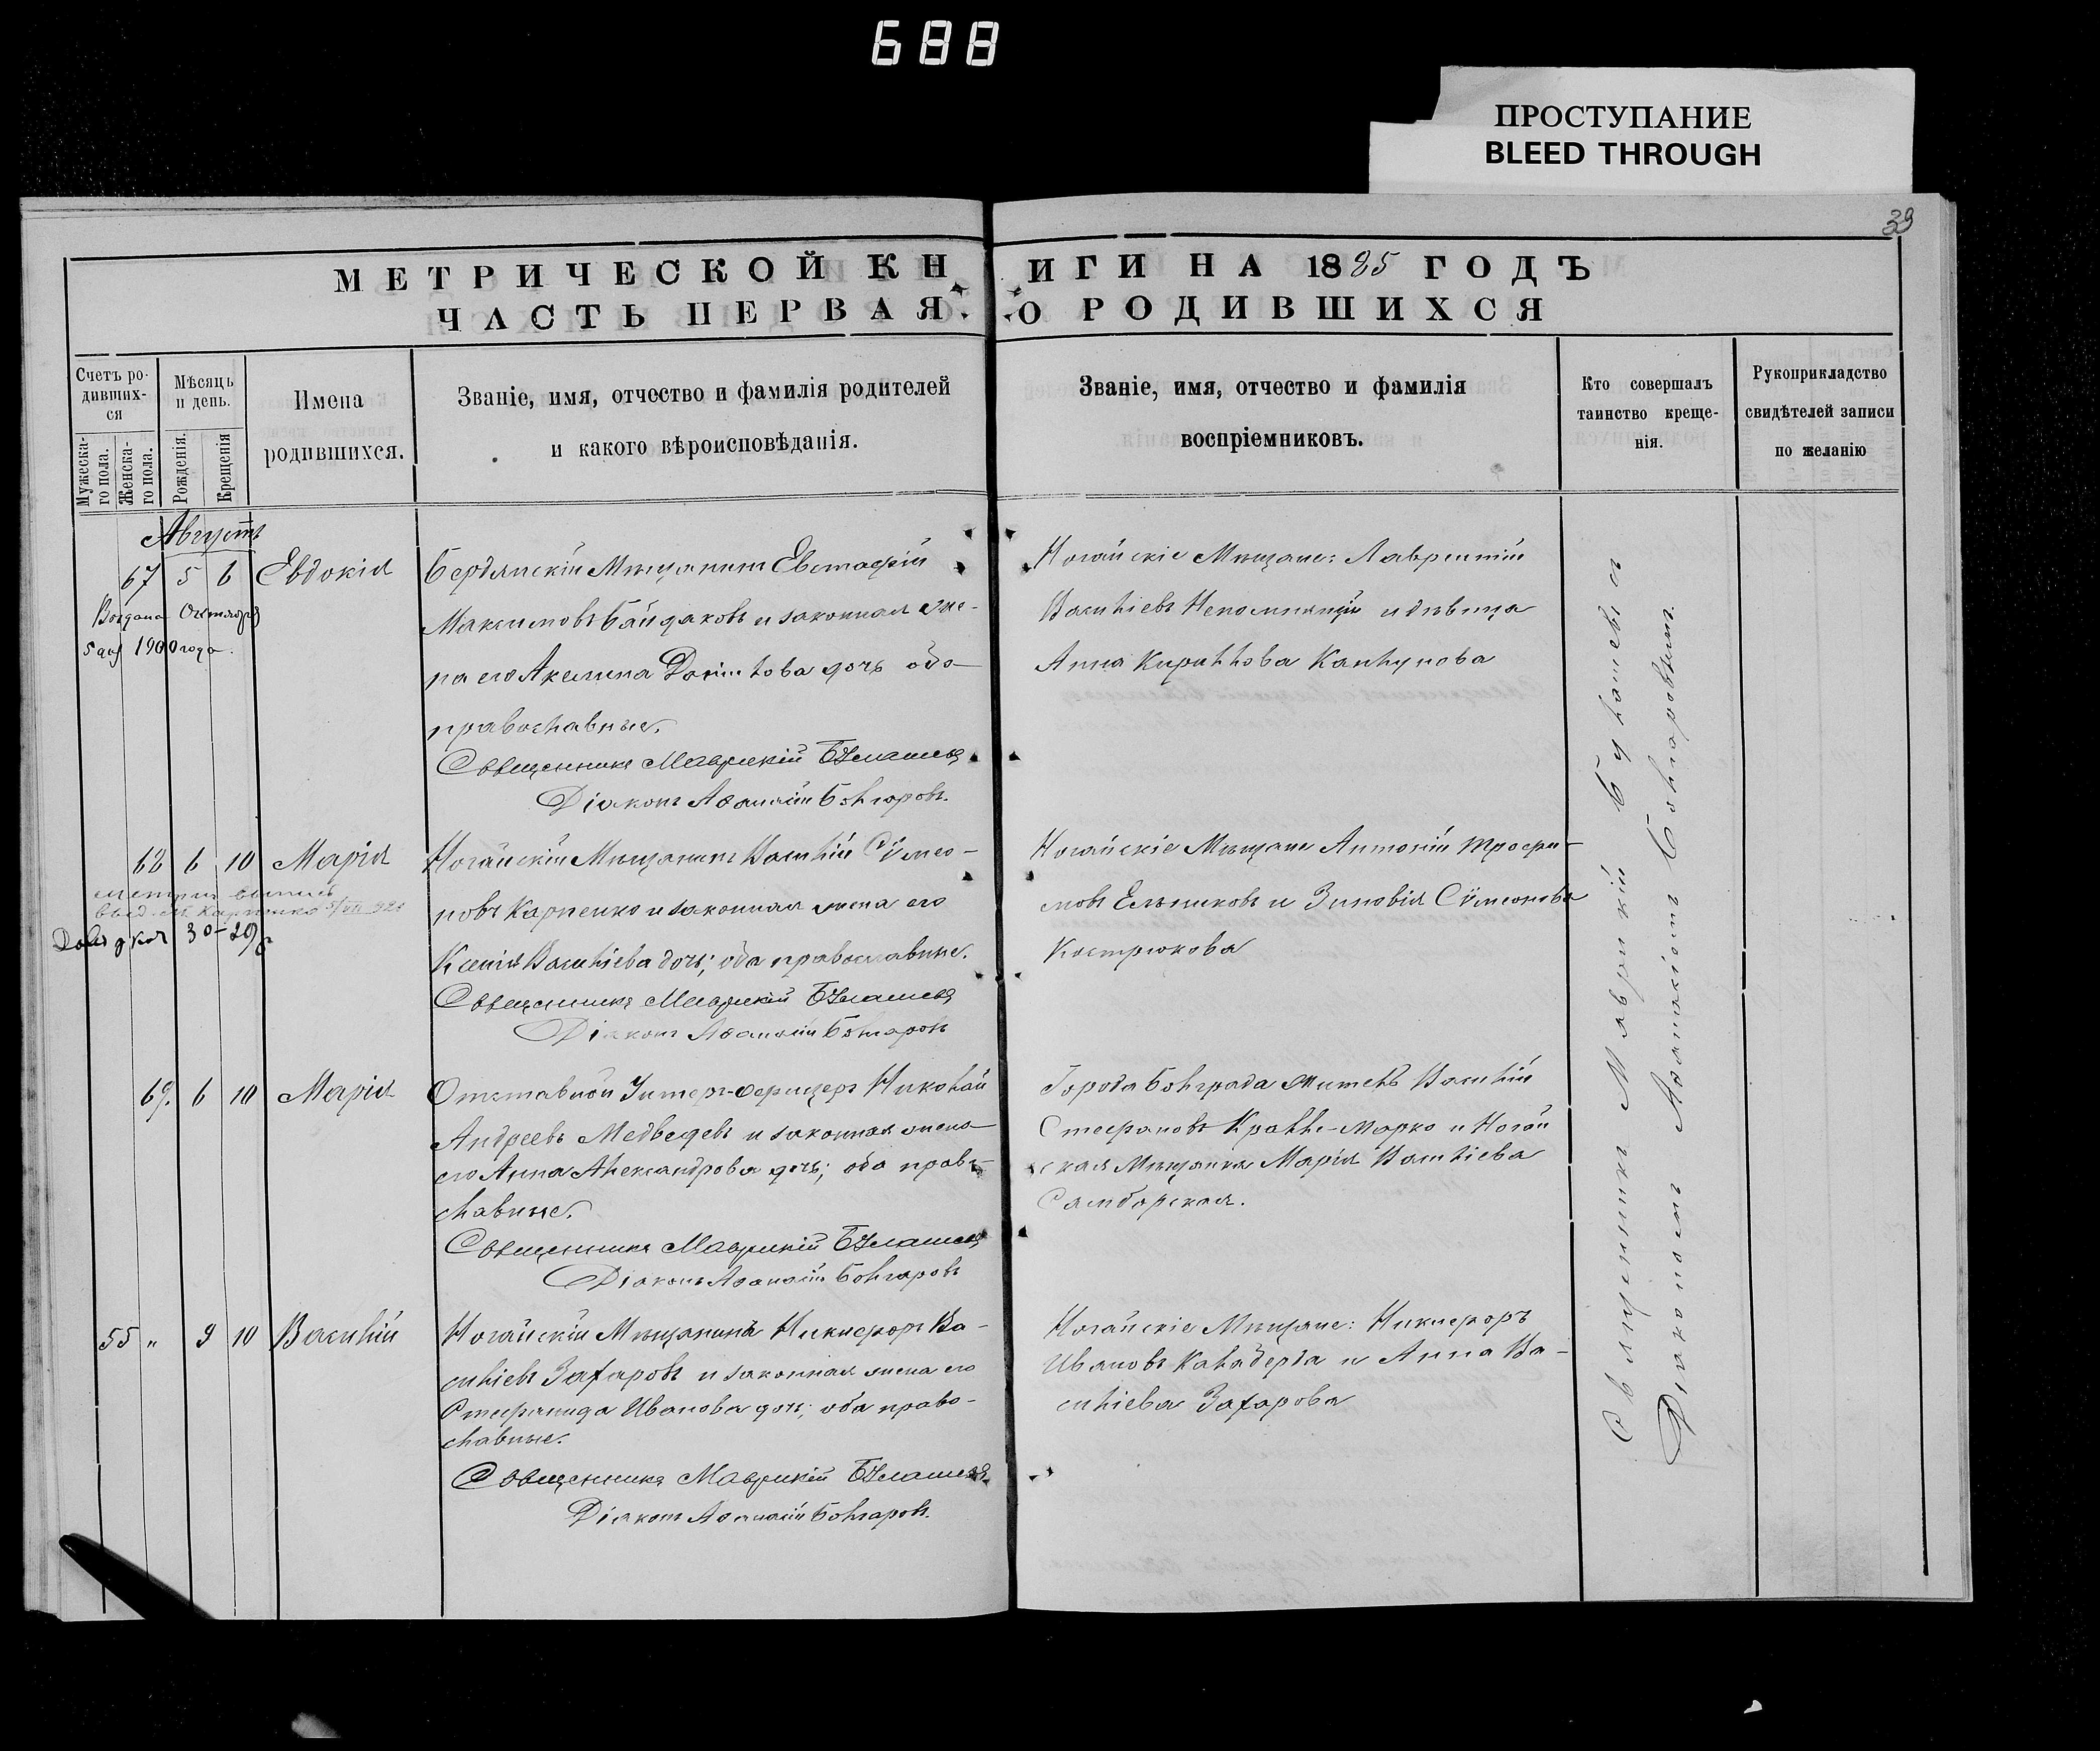 688
ПРОСТУПАНИЕ
BLEED THROUGH
39
МЕТРИЧЕСКОЙ КНИГИ НА 1885 ГОДЪ
ЧАСТЬ ПЕРВАЯ О РОДИВШИХСЯ
Счетъ ро-
дивших-
ся
Мужеска-
го пола.
Женска-
го пола.
Мѣсяцъ
и день.
Рожденія.
Крещенія
Имена
родившихся.
Званіе, имя, отчество и фамилія родителей
и какого вѣроисповѣданія.
Званіе, имя, отчество и фамилія
воспріемниковъ.
Кто совершалъ
таинство креще-
нія.
Рукоприкладство
свидѣтелей записи
по желанію
Августъ
67 5 6 Евдокія
Октября
1900 года.
Бердянскій Мѣщанинъ Евстафій
Максимовъ Байдаковъ и законная же-
на его Акелина Данилова дочь оба
православные.
Священникъ Маврикій
Діаконъ Аѳанасій Болгаровъ.
Ногайскіе Мѣщане: Лаврентій
Васильевъ Непомнящій и дѣвица
Анна Кириллова
68 6 10 Марія
30
Ногайскій Мѣщанинъ Василій Сѵмео-
новъ Карпенко и законная жена его
Ксенія Васильева дочь; оба православные.
Священникъ Маврикій
Діаконъ Аѳанасій Болгаровъ
Ногайскіе Мѣщане Антоній Трофи-
мовъ Ельниковъ и Зиновія Сѵмеонова
Кострюкова
69. 6 10 Марія
Отставной Унтеръ-Офицеръ Николай
Андреевъ Медведевъ и законная жена
его Анна Александрова дочь; оба право-
славные.
Священникъ Маврикій
Діаконъ Аѳанасій Болгаровъ
Города Болграда житель Василій
Стефановъ Кралли-Марко и Ногай
ская Мѣщанка Марія Васильева
Самборская.
55 „ 9 10 Василій
Ногайскій Мѣщанинъ Никифоръ Ва-
сильевъ Захаровъ и законная жена его
Стефанида Иванова дочь; оба право-
славные.
Священникъ Маврикій
Діаконъ Аѳанасій Болгаровъ.
Ногайскіе Мѣщане: Никифоръ
Ивановъ Калабердa и Анна Ва-
сильева Захарова
Священникъ Маврикій
Діакономъ Аѳанасіемъ Болгаровымъ.